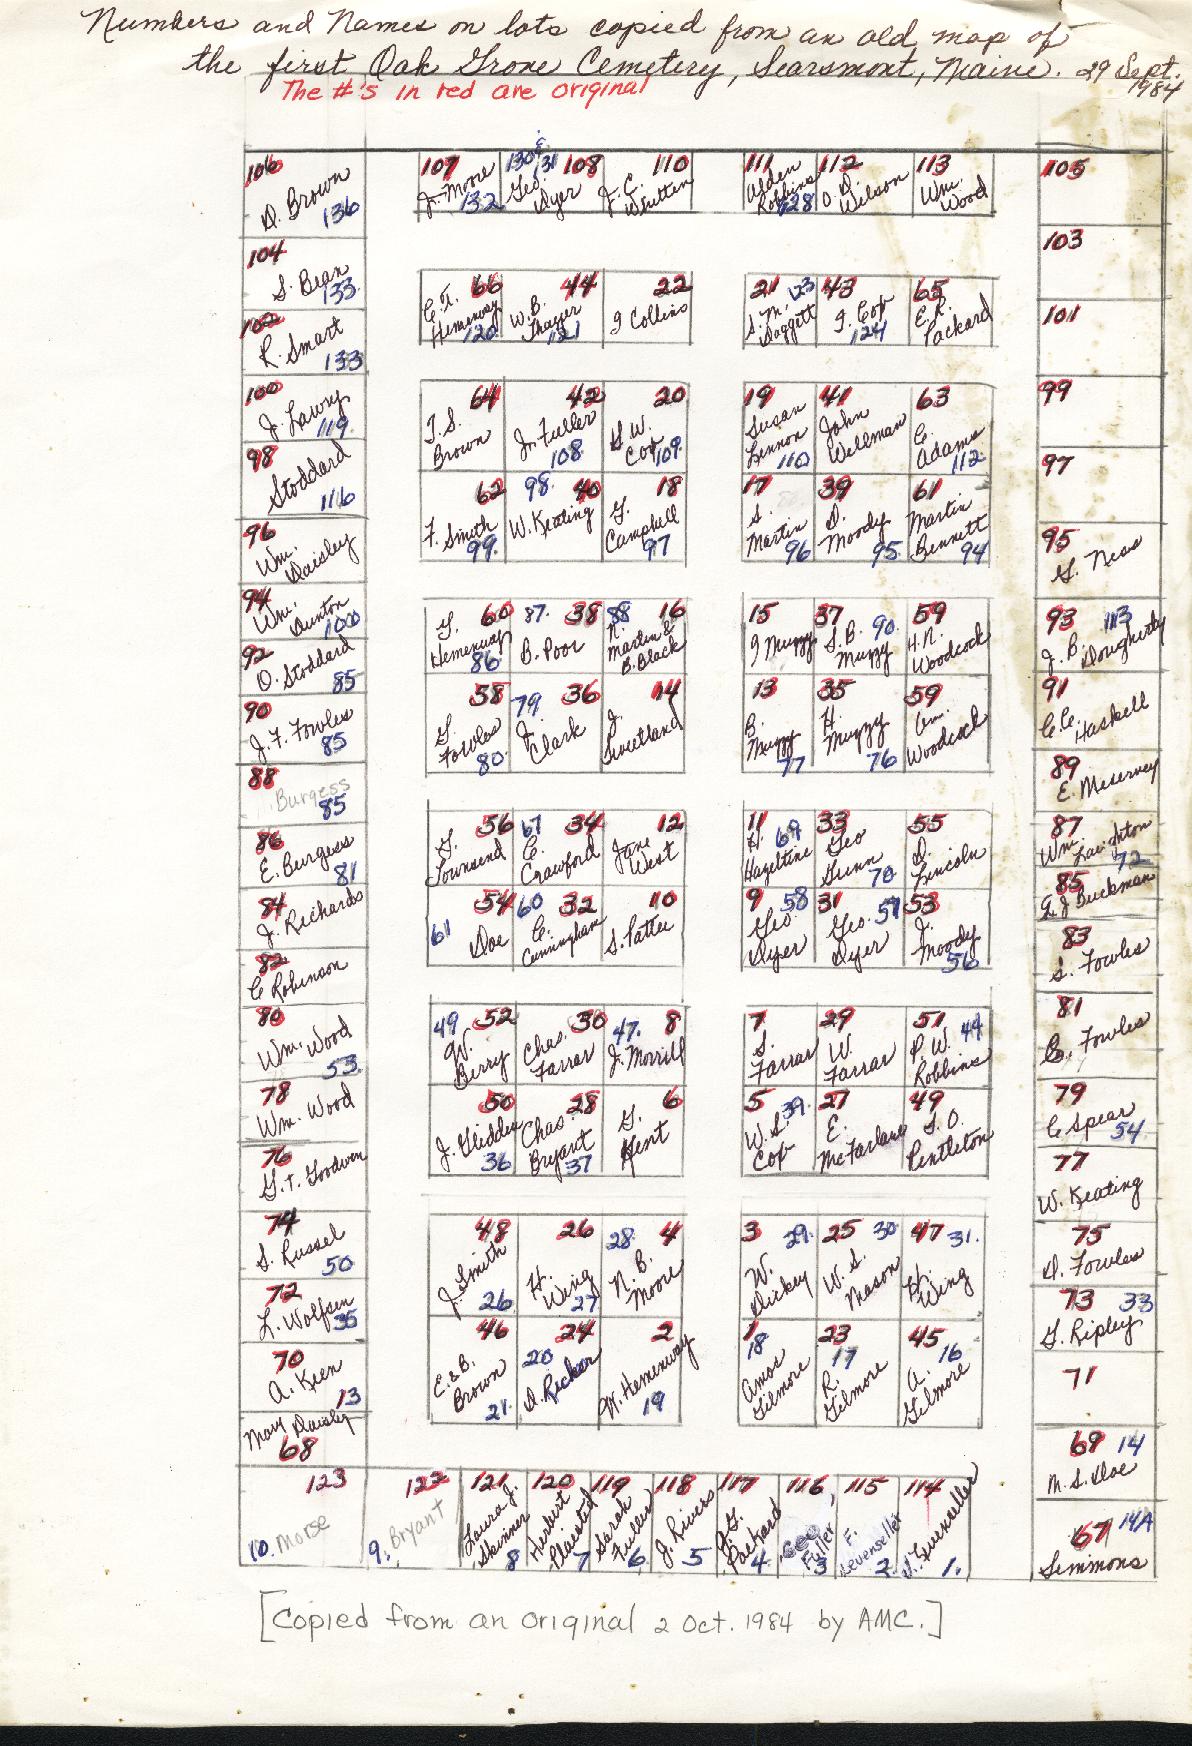 Numbers and Names on lots copied from an old map of
the first Oak Grove Cemetery, Searsmont, Maine. 29 Sept. 1984
The #'s in red are original
106 D. Brown 136
107 J. Moore 132
130 & 131 108 Geo. Dyer
110 J. C. Whitten
111 Alden Robbins 128
112 O. D. Wilson
113 Wm. Wood
105
104 S. Bean 133
103
66 Hemenway 120
44 W. B. Thayer 121
22 I Collins
21 123 S. M. Daggett
43 I. Cox 124
65 E. R. Packard
102 R. Smart 133
101
100 J. Lawry 119
64 T. S. Brown
42 J. Fuller 108
20 S. W. Cox 109
19 Susan Lennon 110
41 John Wellman
63 C. Adams 112
99
98 Stoddard 116
62 F. Smith 99
98 40 W. Keating
18 G. Campbell 97
17 S. Martin 96
39 D. Moody 95
61 Martin Bennett 94
97
96 Wm. Daisley
95 G. Ness
94 Wm. Dunton 100
60 Hemenway 86
87 38 B. Poor
88 16 N. Martin & B. Black
15 I Muzzy
37 S. B. 90 Muzzy
59 H. N. Woodcock
93 113 J. B. Dougherty
92 O. Stoddard 85
91 C. C. Haskell
90 J. F. Fowles 85
58 G. Fowles 80
79 36 J. Clark
14 J. Sweetland
13 B. Muzzy 77
35 H. Muzzy 76
59 Wm. Woodcock
89 E. Meservey
88 Burgess 85
87 Wm. Laughton 72
86 E. Burgess 81
56 Townsend
67 34 C. Crawford
12 Jane West
11 H. 69 Hazeltine
33 Geo Gunn 70
55 D. Lincoln
85 G. J Buckman
84 J. Richards
54 61 Doe
60 32 C. Cunningham
10 S. Pattee
9 58 Geo. Dyer
31 57 Geo. Dyer
53 J. Moody 56
83 S. Fowles
82 C Robinson
81 Fowles
80 Wm. Wood 53
49 52 W. Berry
30 Chas. Farrar
47 8 J. Morrill
7 S. Farrar
29 W. Farrar
51 44 P. W. Robbins
79 C Spear 54
78 Wm. Wood
50 J. Glidden 36
28 Chas. Bryant 37
6 G. Hent
5 39 W. S. Cox
27 E. McFarland
49 S. O. Pentleton
77 W. Keating
76 G. T. Goodwin
75 D. Fowles
74 S. Russel 50
48 J. Smith 26
26 H. Wing 27
28 4 N. B. Moore
3 29 W. Dickey
25 30 W. S. Mason
47 31 H. Wing
73 33 G. Ripley
72 L. Wolfsen 35
71
70 A. Keen 13
46 E. & B. Brown 21
24 20 D. Ricker
2 W. Hemenway 19
1 18 Amos Gilmore
23 17 R. Gilmore
45 16 A. Gilmore
69 14 M. S. Doe
Mary Daisley 68
67 14A Simmons
123 10. Morse
122 9. Bryant
121 Laura J. Skinner 8
120 Herbert Plaisted 7
119 Sarah Fuller 6
118 J. Rivers 5
117 Packard 4
116 Geo Fuller 3
115 F. Levenseller 2
114 Levenseller 1.
[Copied from an original 2 Oct. 1984 by AMC.]